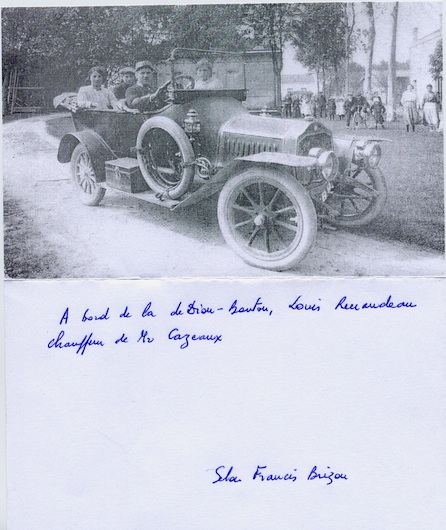 A bord de la de Dion-Bouton, Louis Renaudeau
chauffeur de Mr Cazeaux
Selon Francis Brizou